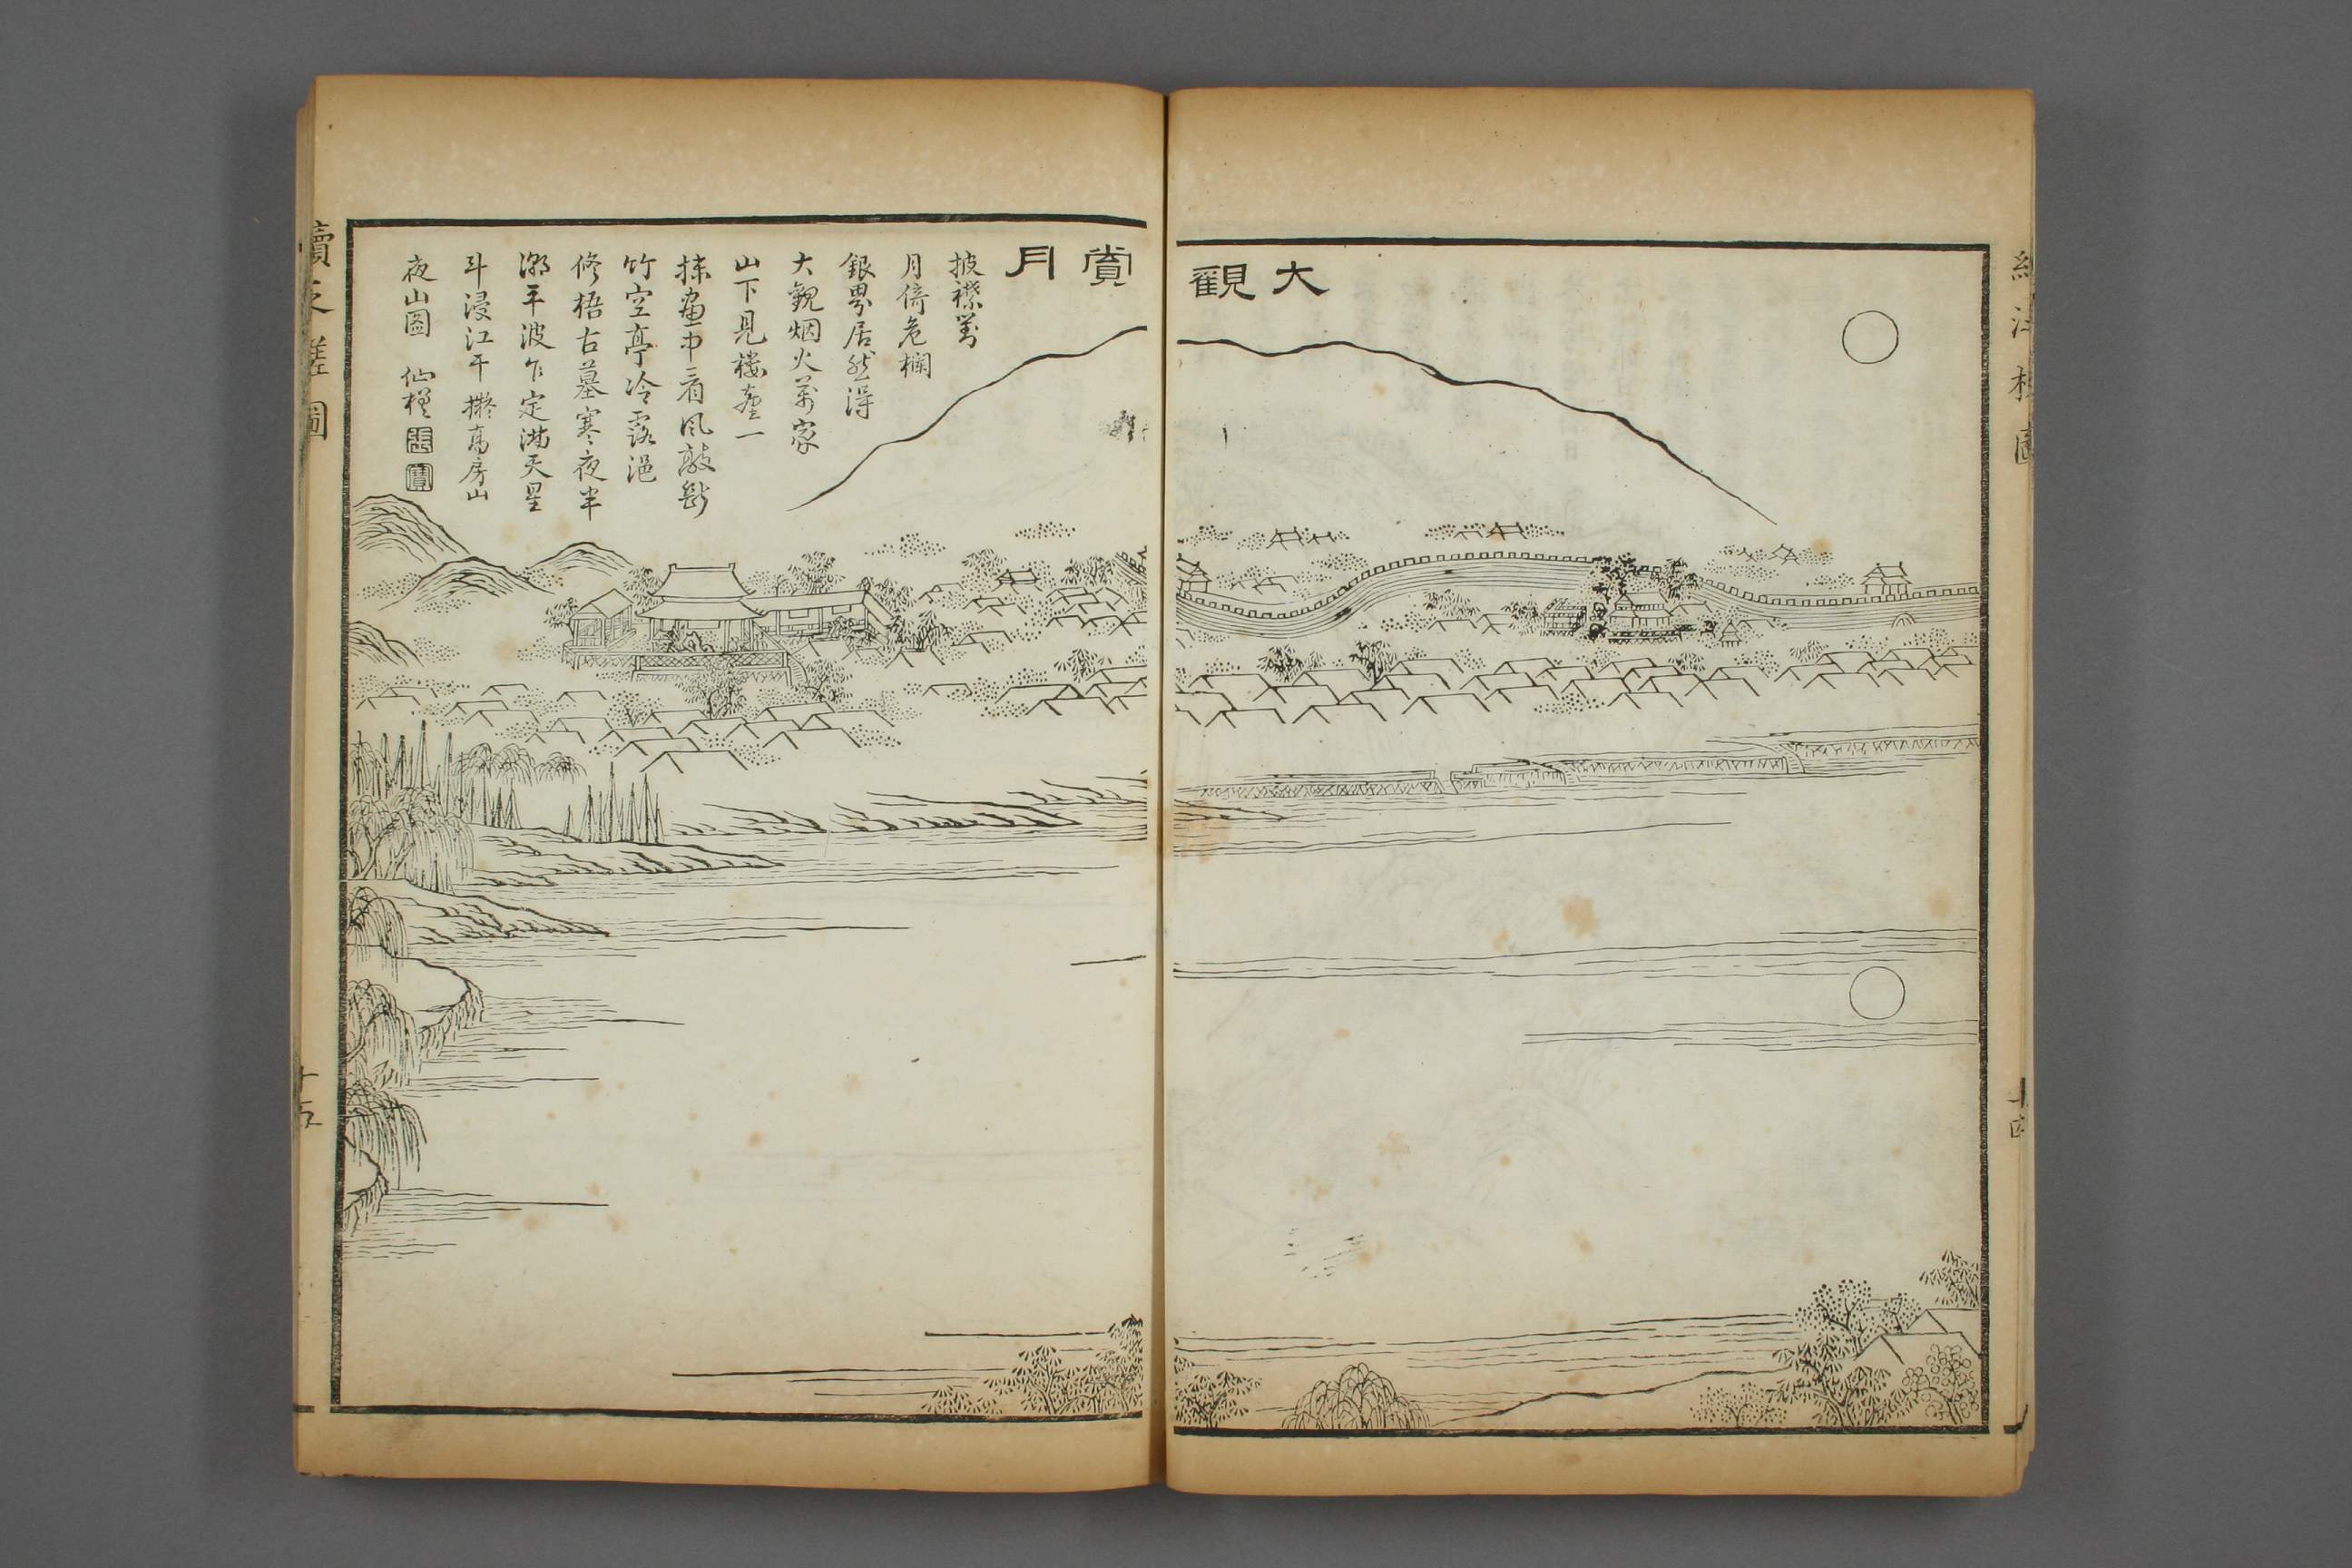 大觀
賞月
披襟對
月倚危欄
銀界居然淂
大觀烟火萬家
山下見樓臺一
抹畫中看風敲斷
竹空亭冷露浥
修梧古墓寒夜半
潮平波乍定滿天星
斗浸江干 擬高房山
夜山圖 仙槎
張
寶
續泛槎圖
十五